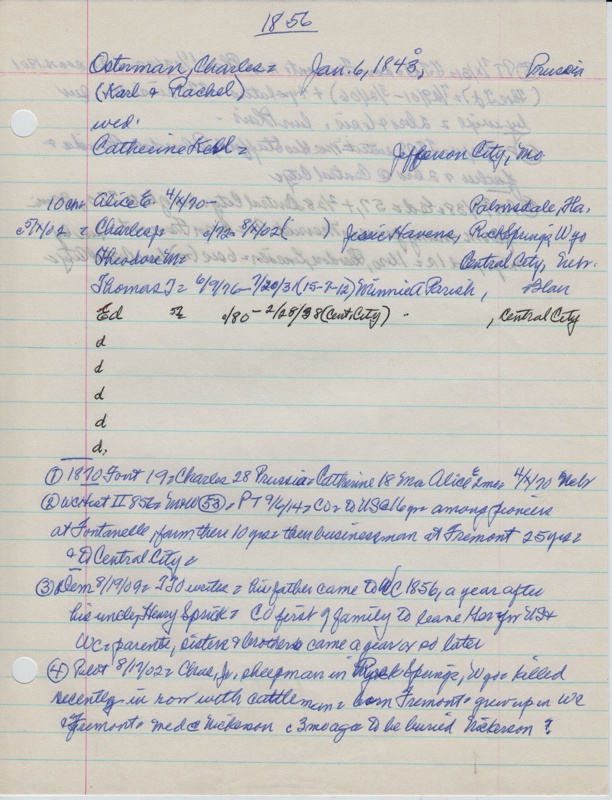 1856
Osterman, Charles = Jan. 6, 1843, Prussia
(Karl & Rachel)
wed.
Catherine = Jefferson City, Mo
10 ch = Alice E 4/4/70- Palmsdale, Fla.
c5/7/02 = Charles c/72- 8/2/02 ( ) Jessie Havens, Rock Springs, Wyo
Theodore M = Central City, Nebr.
Thomas J = 6/9/76- 7/20/31 (15-7-12) Winnie Parish, Blair
Ed c/80 - 2/28/38 (Cent. City) " , Central City
d
d
d
d
d.
① 1870 Font 19 = Charles 28 Prussia = Catherine 18 Mo Alice E 2mo = 4/4/70 Nebr
② WC Hist II 856 = = PT 9/4/14 = CO = to US @ 16 yr = among pioneers
at Fontanelle, farm there 10 yrs = then businessman at Fremont 25 yrs =
& to Central City =
③ Dem 8/19/09 = TJO writes = his father came to WC 1856, a year after
his uncle, Henry Sprick = CO first of family to leave for US =
WC = parents, sisters & brothers came a year or so later
④ Pilot 8/13/02 = Chas, Jr., sheepman in Rock Springs, Wyo = killed
recently in row with cattlemen = born Fremont = grew up in WC
& Fremont = med @ Nickerson c 3 mo ago = to be buried Nickerson ?